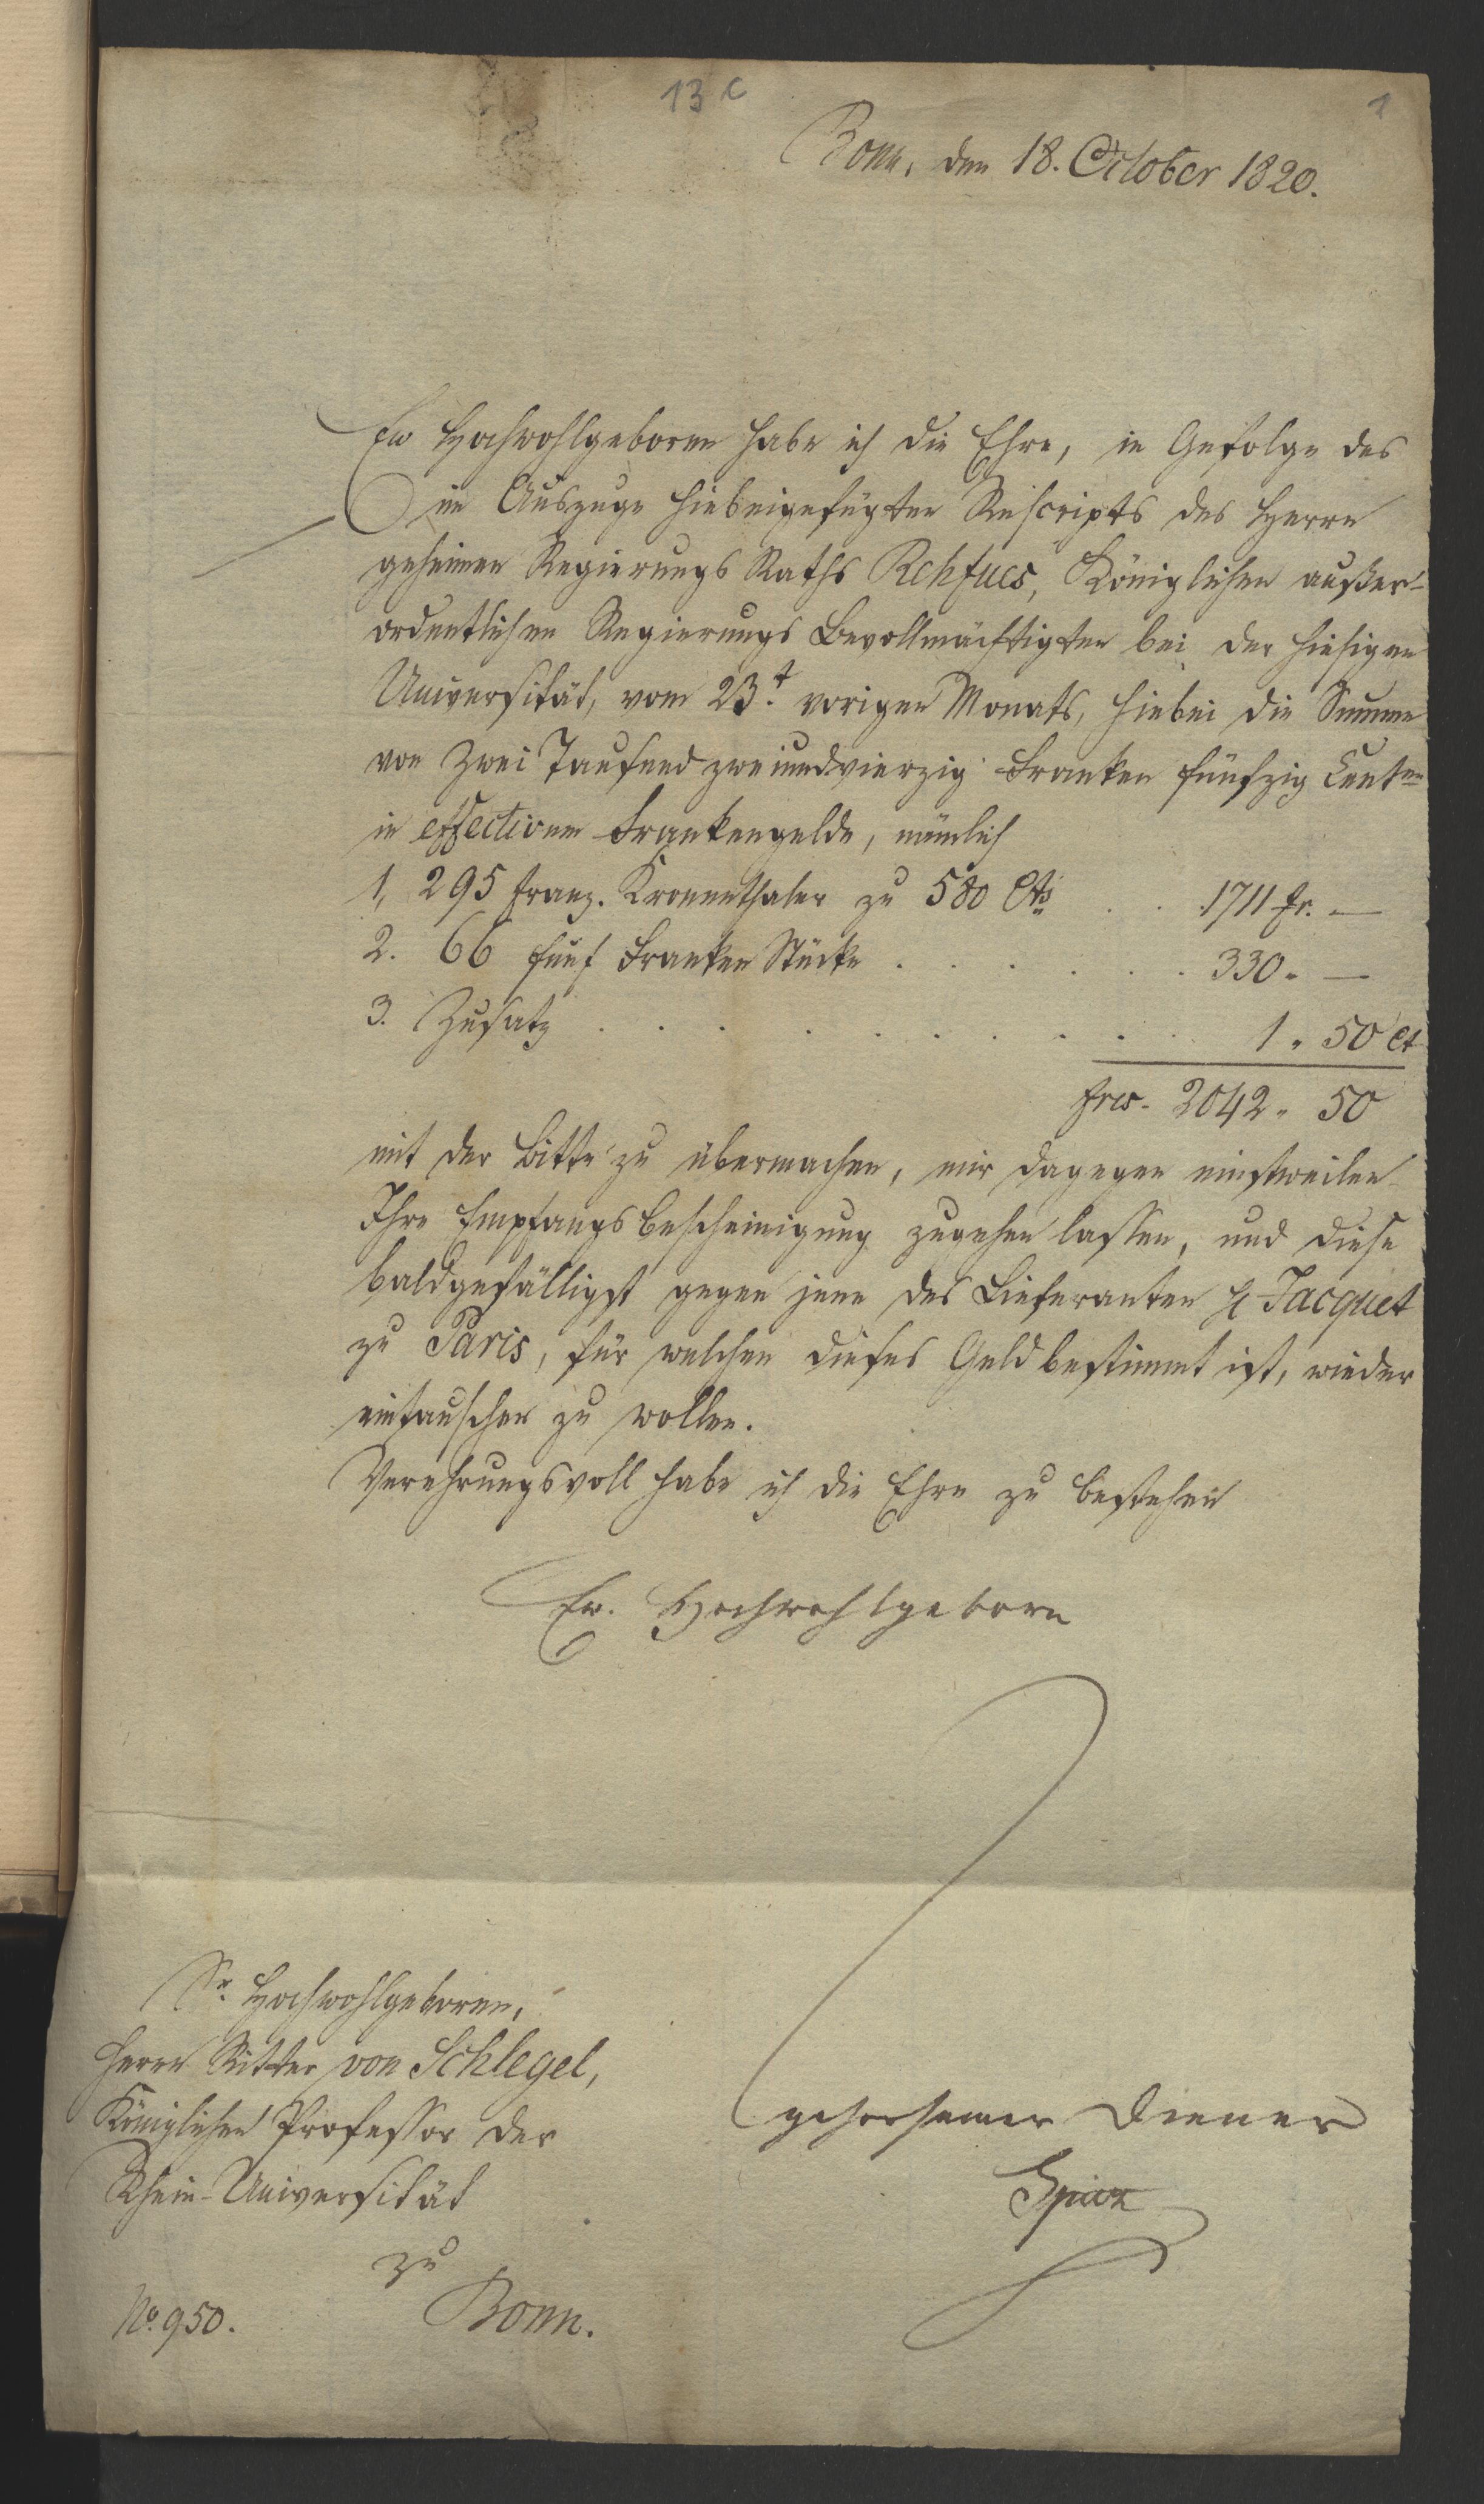 13 c
1
Bonn, den 18. October 1820.
Ew Hochwohlgeboren habe ich die Ehre, in Gefolge des
im Auszuge hiebeigefügten Rescripts des Herrn
geheimen Regierungs Raths Rehfues, Königlichen außer-
ordentlichen Regierungs Bevollmächtigten bei der hiesigen
Universität, vom 23.t vorigen Monats, hiebei die Summe
von Zwei Tausend zweiundvierzig Franken fünfzig Centen
in effectivem Frankengelde, nämlich
1, 295 franz. Kronenthaler zu 580 Cts . . . 1711 fr. —
2. 66 fünf Franken Stücke . . . . . . 330 „ —
3. Zusatz . . . . . . . . . . 1 „ 50 Ct
frcs. 2042 „ 50
mit der Bitte zu übermachen, mir dagegen einstweilen
Ihre Empfangsbescheinigung zugehen lassen, und diese
baldgefälligst gegen jene des Lieferanten H Jacquet
zu Paris, für welchen dieses Geld bestimmt ist, wieder
eintauschen zu wollen.
Verehrungsvoll habe ich die Ehre zu bestehen
Ew. Hochwohlgeborn
gehorsamer Diener
Sr. Hochwohlgeboren,
Herrn Ritter von Schlegel,
Königlichen Professor der
Rhein-Universität
zu
Bonn.
No. 950.